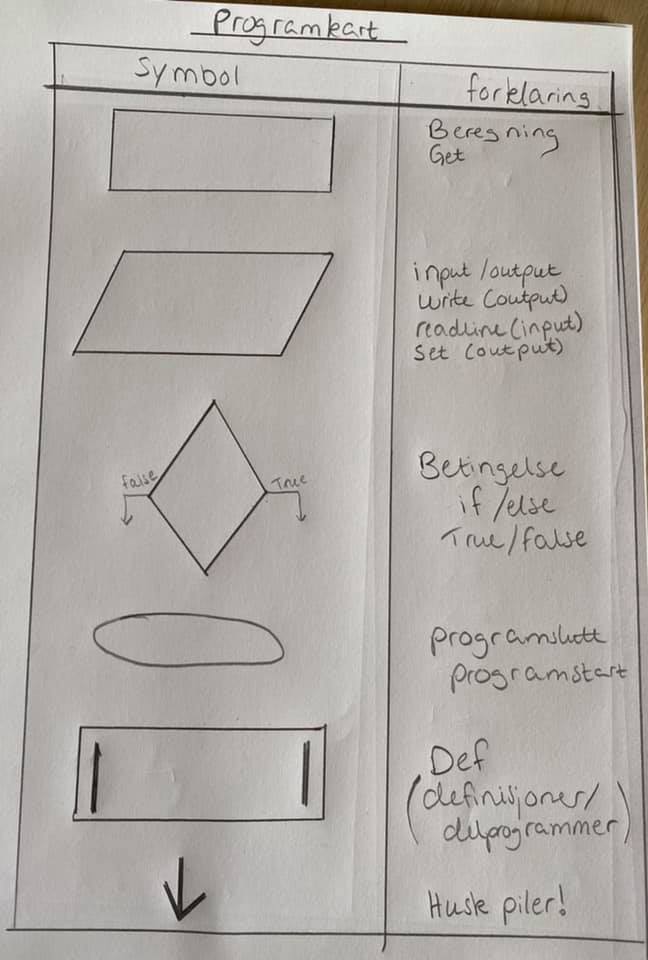 Programkart
Symbol
forklaring
Beregning
Get
input/output
write (output)
readline (input)
set (output)
false
True
Betingelse
if/else
True/false
programslutt
programstart
Def
(definisjoner/
delprogrammer)
Husk piler!